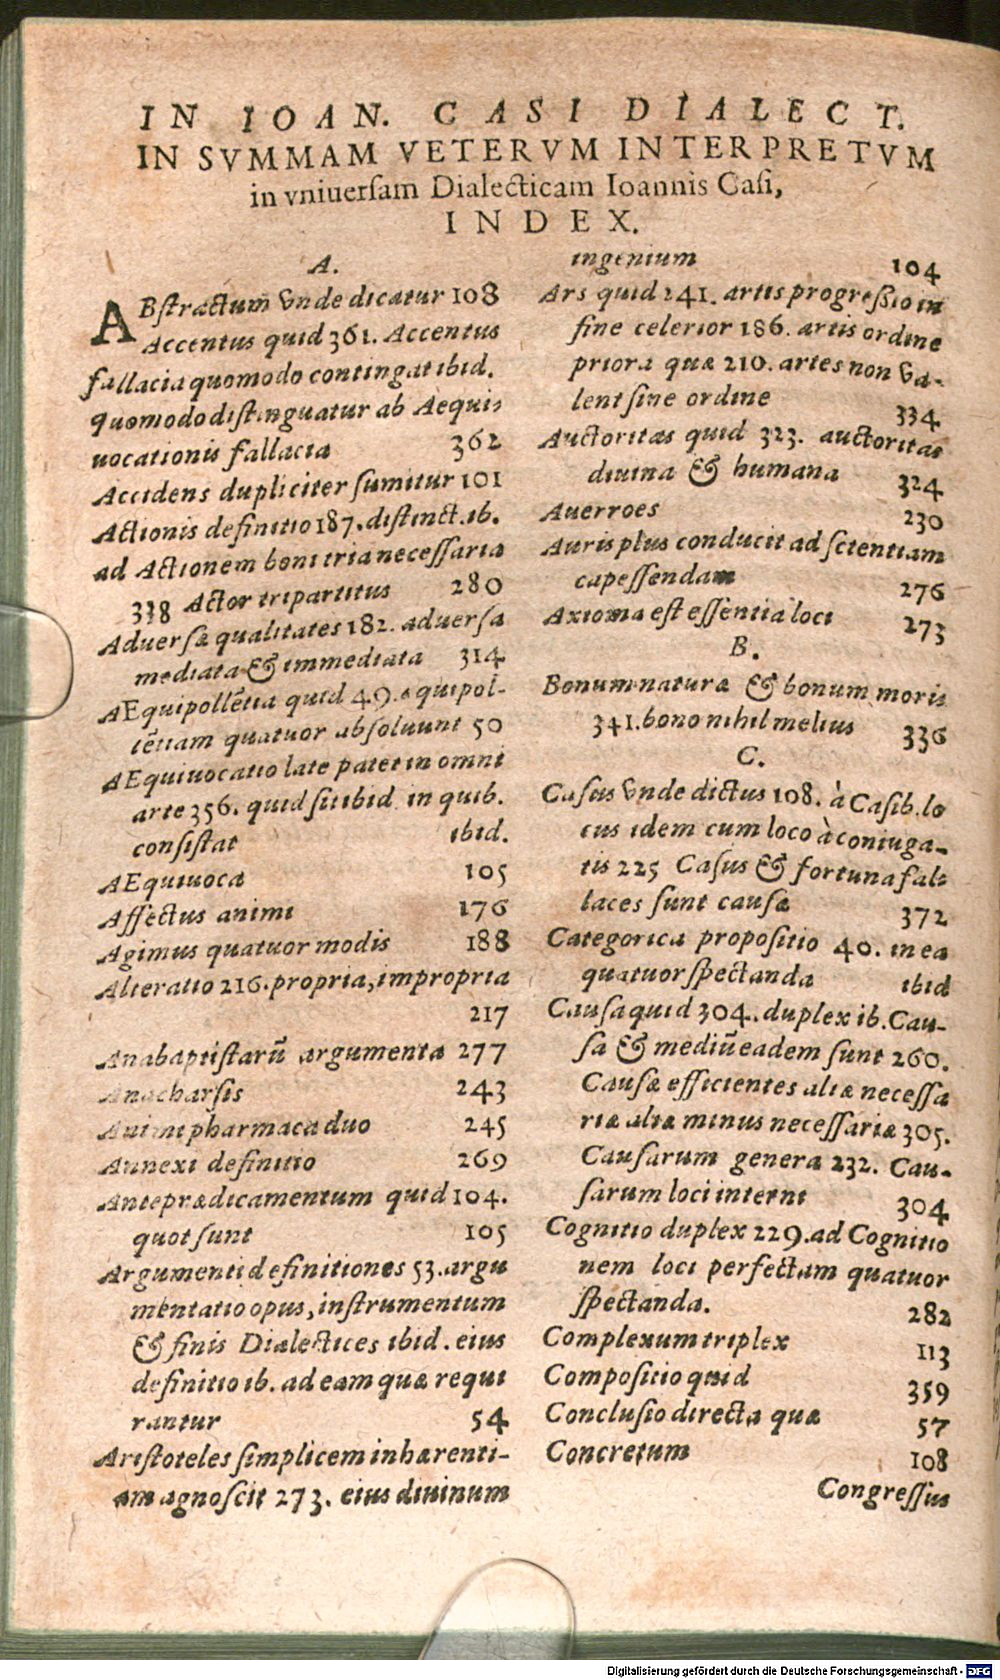 IN IOAN. CASI DIALECT.
IN SVMMAM VETERVM INTERPRETVM
in vniuersam Dialecticam Ioannis Casi,
INDEX.
A.
ABstractum vnde dicatur 108
Accentus quid 361. Accentus
fallacia quomodo contingat ibid.
quomodo distinguatur ab Aequi-
uocationis fallacia 362
Accidens dupliciter sumitur 101
Actionis definitio 187. distinct. ib.
ad Actionem boni tria necessaria
338 Actor tripartitus 280
Aduersæ qualitates 182. aduersa
mediata & immediata 314
AEquipollẽtia quid 49. æquipol-
lẽtiam quatuor absoluunt 50
AEquiuocatio late patet in omni
arte 356. quid sit ibid. in quib.
consistat ibid.
AEquiuoca 105
Affectus animi 176
Agimus quatuor modis 188
Alteratio 216. propria, impropria
217
Anabaptistarũ argumenta 277
Anacharsis 243
Animi pharmaca duo 245
Annexi definitio 269
Anteprædicamentum quid 104.
quot sunt 105
Argumenti definitiones 53. argu
mentatio opus, instrumentum
& finis Dialectices ibid. eius
definitio ib. ad eam quæ requi
rantur 54
Aristoteles simplicem inhærenti-
am agnoscit 273. eius diuinum
ingenium 104
Ars quid 241. artis progressio in
fine celerior 186. artis ordine
priora quæ 210. artes non va-
lent sine ordine 334
Auctoritas quid 323. auctoritas
diuina & humana 324
Auerroes 230
Auris plus conducit ad scientiam
capessendam 276
Axioma est essentia loci 273
B.
Bonum naturæ & bonum moris
341. bono nihil melius 336
C.
Casus vnde dictus 108. à Casib. lo
cus idem cum loco à coniuga-
tis 225 Casus & fortuna fal-
laces sunt causæ 372
Categorica propositio 40. in ea
quatuor spectanda ibid
Causa quid 304. duplex ib. Cau-
sa & mediũ eadem sunt 260.
Causæ efficientes aliæ necessa
riæ aliæ minus necessariæ 305.
Causarum genera 232. Cau-
sarum loci interni 304
Cognitio duplex 229. ad Cognitio
nem loci perfectam quatuor
spectanda. 282
Complexum triplex 113
Compositio quid 359
Conclusio directa quæ 57
Concretum 108
Congressus
Digitalisierung gefördert durch die Deutsche Forschungsgemeinschaft - DFG